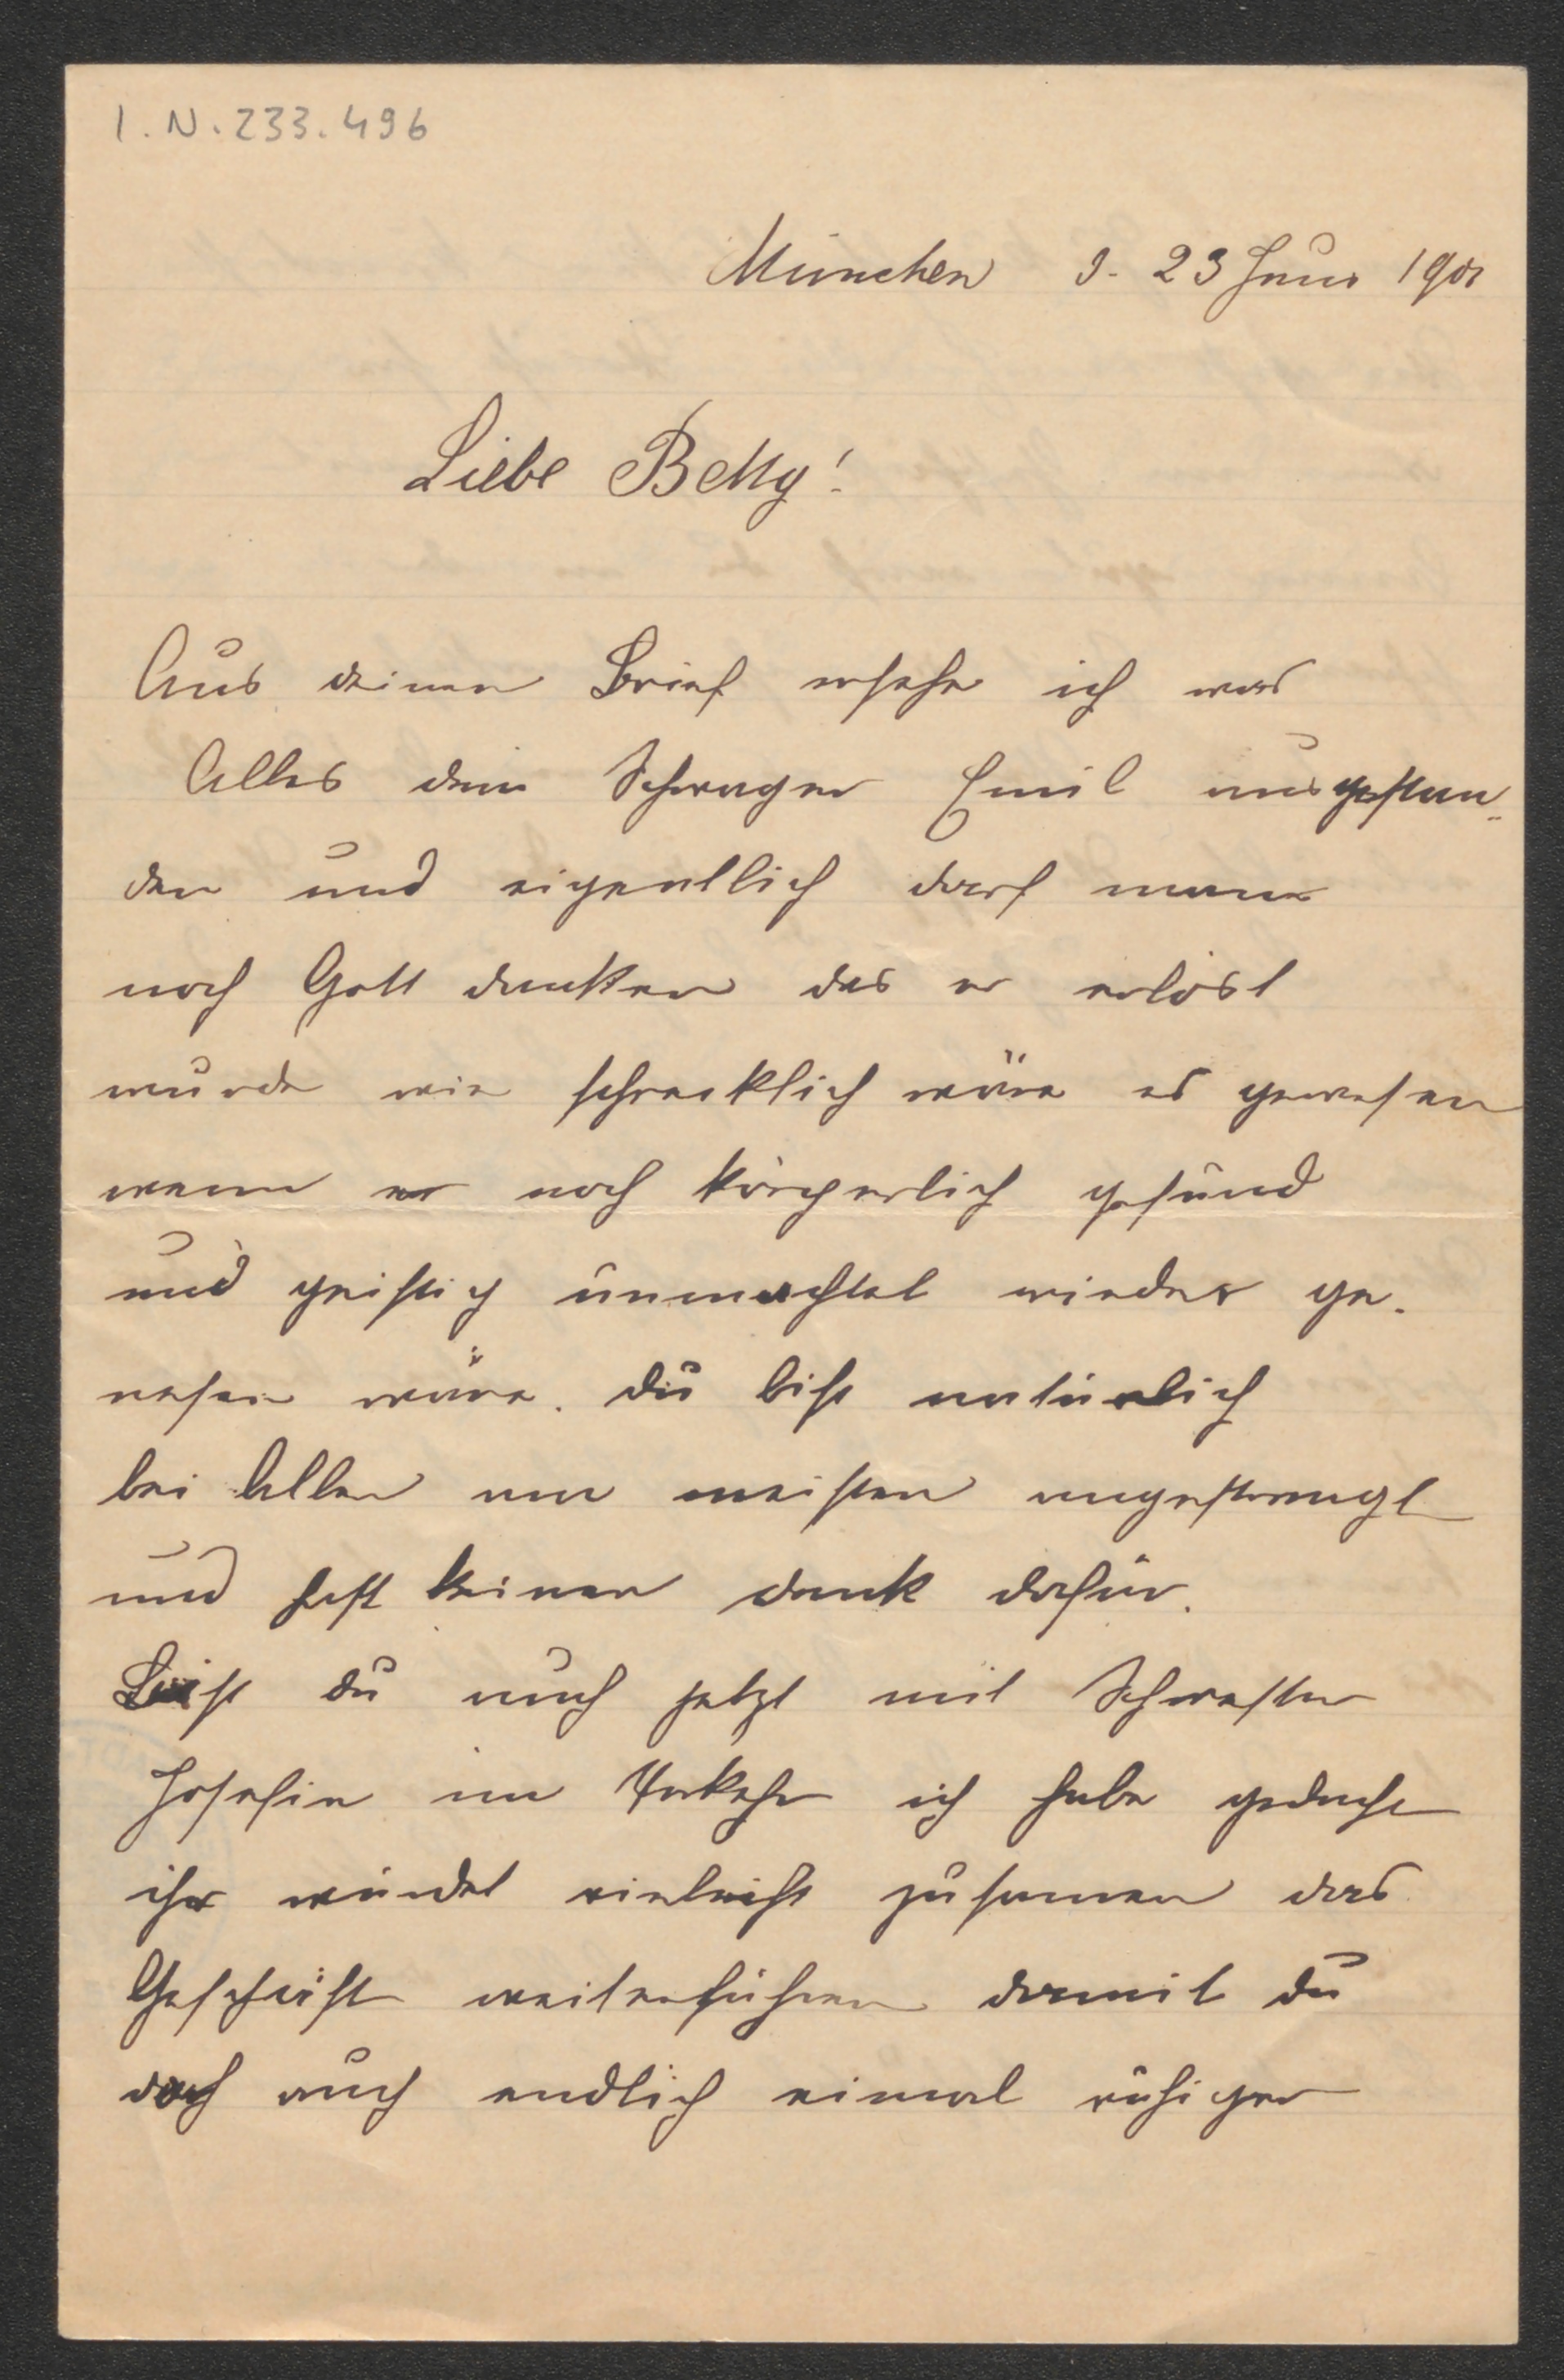 I.N. 233.496
München d. 23 Juni 1901
Liebe Betty!
Aus deinen Brief ersehe ich was
Alles dein Schwager Emil ausgestan-
den und eigentlich darf man
noch Gott danken das er erlöst
wurde wie schrecklich wäre es gewesen
wenn er noch körperlich gesund
und geistig unmachtet wieder ge-
nesen wäre. du bist natürlich
bei Allen am meisten angestrengt
und hast keinen dank dafür.
Bist du auch jetzt mit Schwester
Josefin im Verkehr ich habe gedacht
ihr würdet vieleicht zusamen das
Geschäft weiterführen damit du
doch auch endlich einmal ruhiger